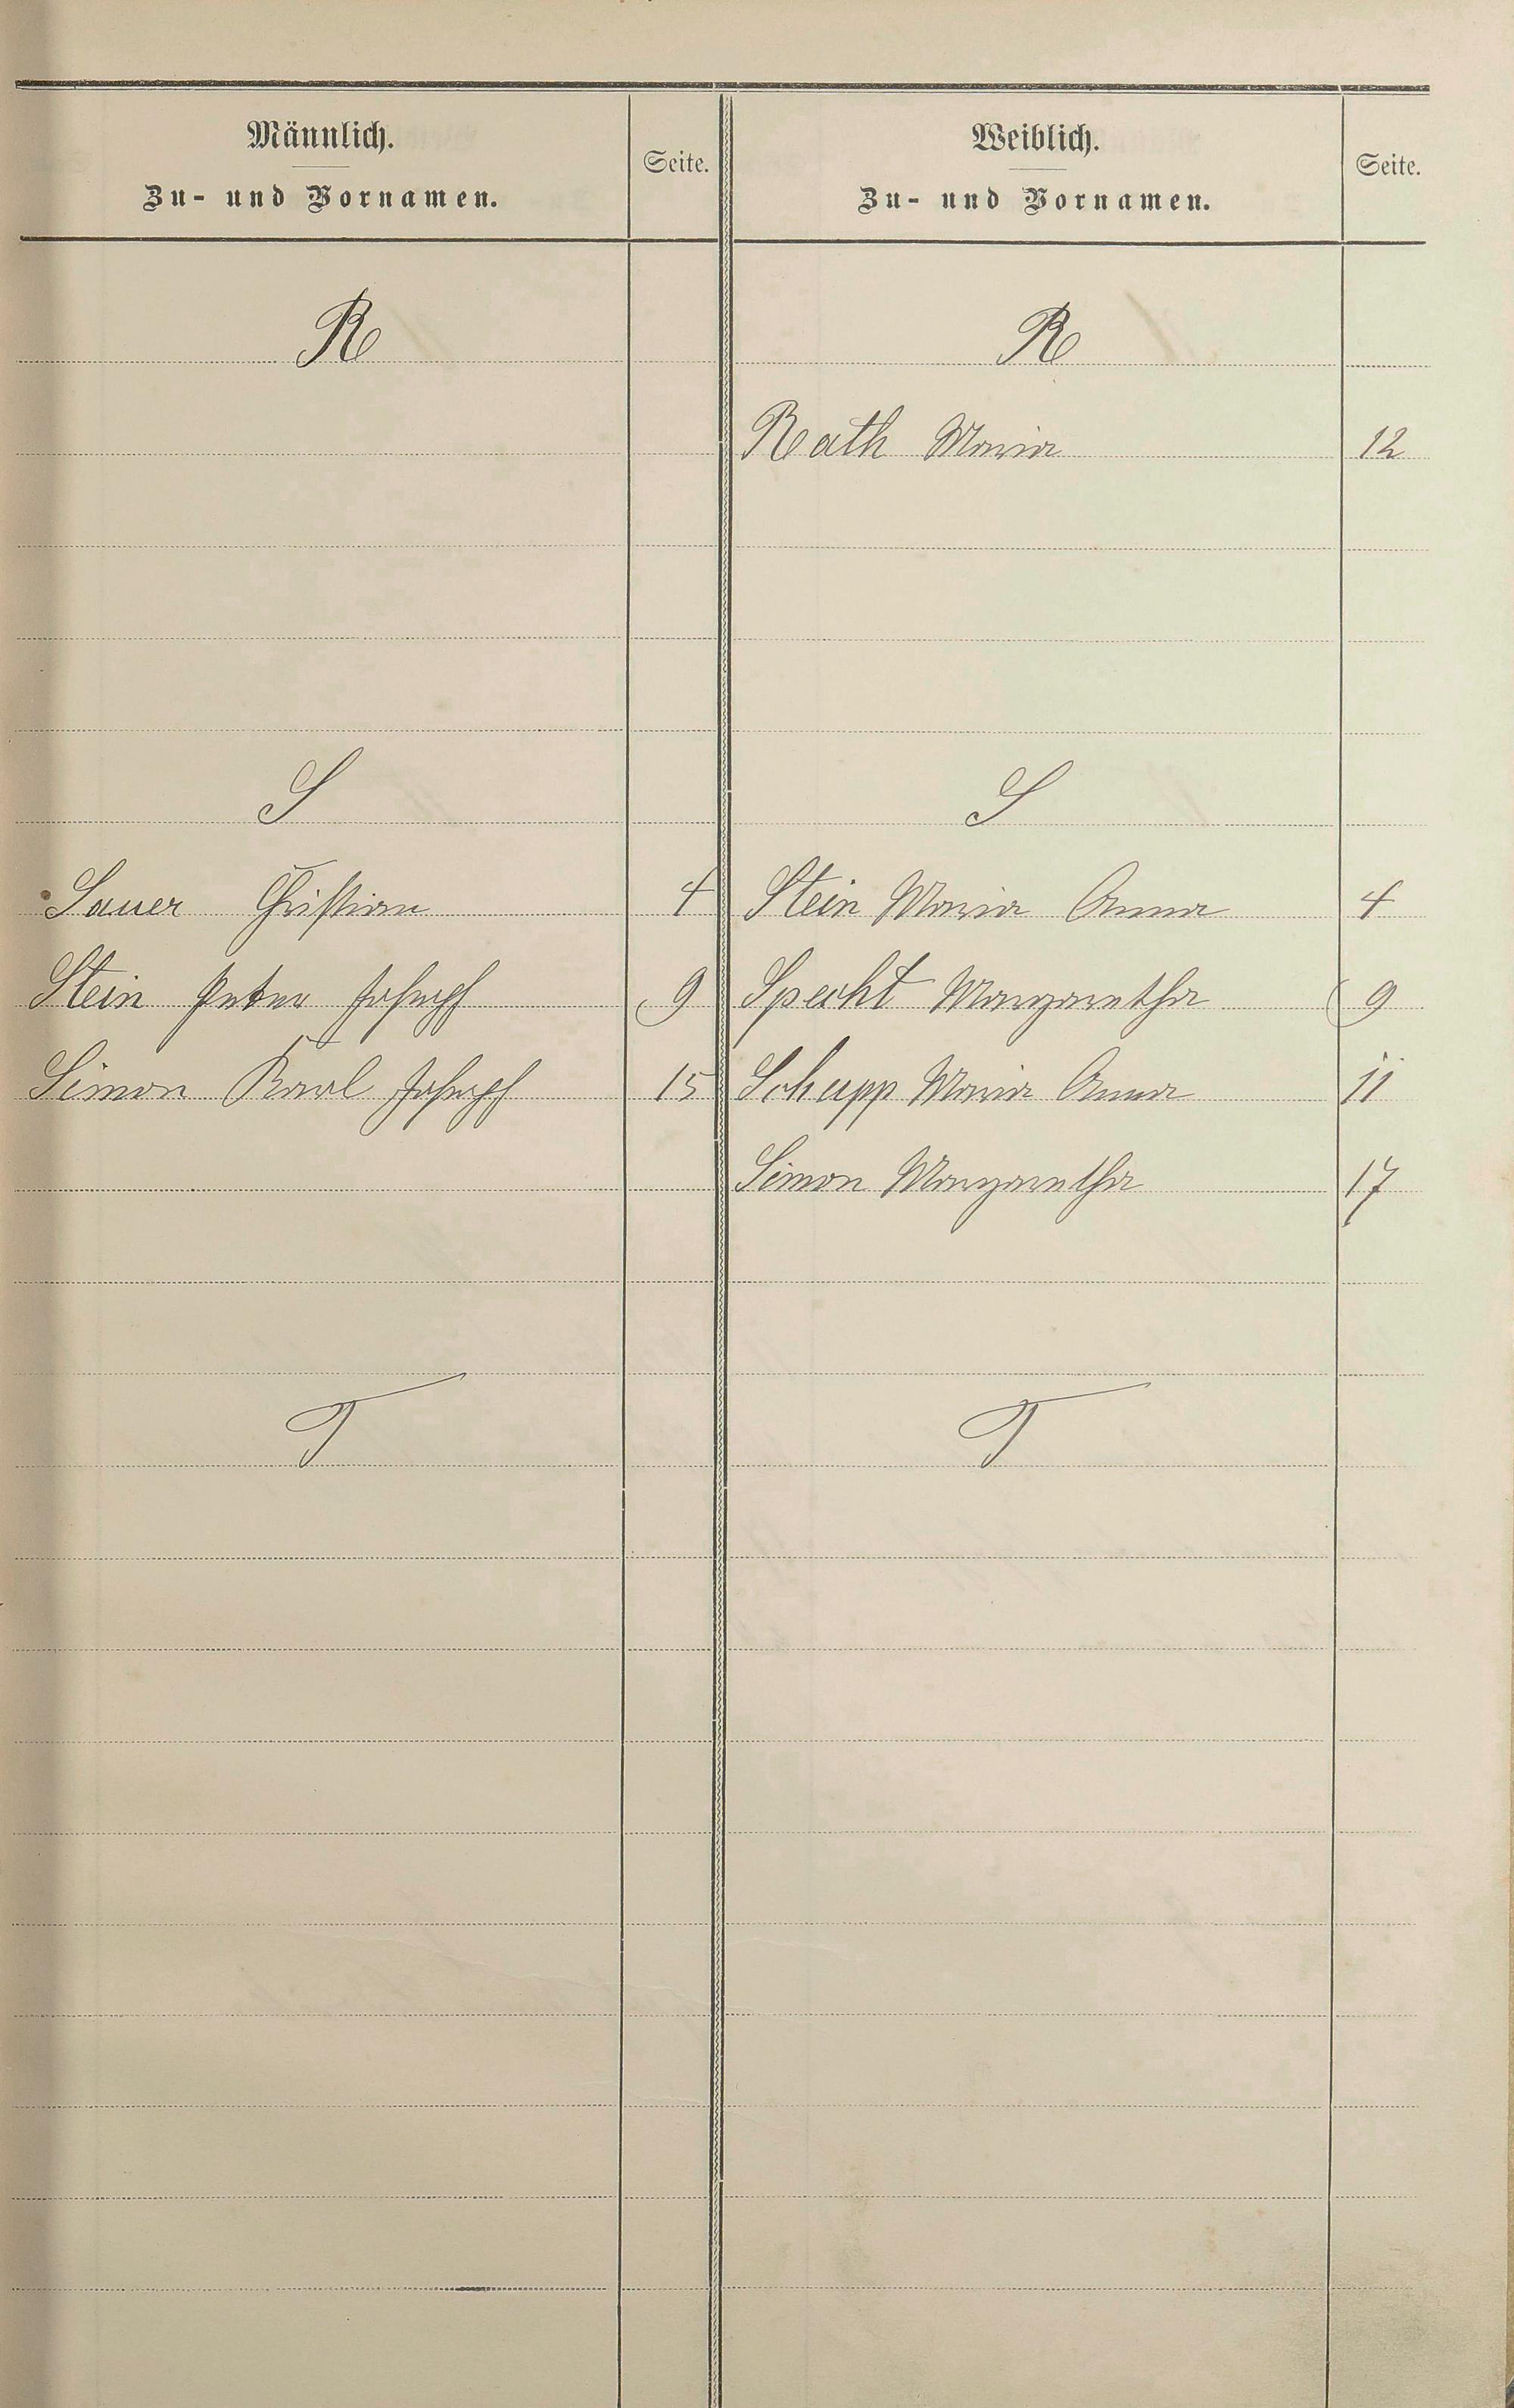 Männlich.
Zu- und Vornamen.
Seite.
Weiblich.
Zu- und Vornamen.
Seite.
R
R
Rath Maria 12
S
S
Sauer Christian 4
Stein Maria Anna 4
Stein Peter Joseph 9
Specht Margaretha 9
Simon Karl Joseph 15
Schupp Maria Anna 11
Simon Margaretha 17
T
T